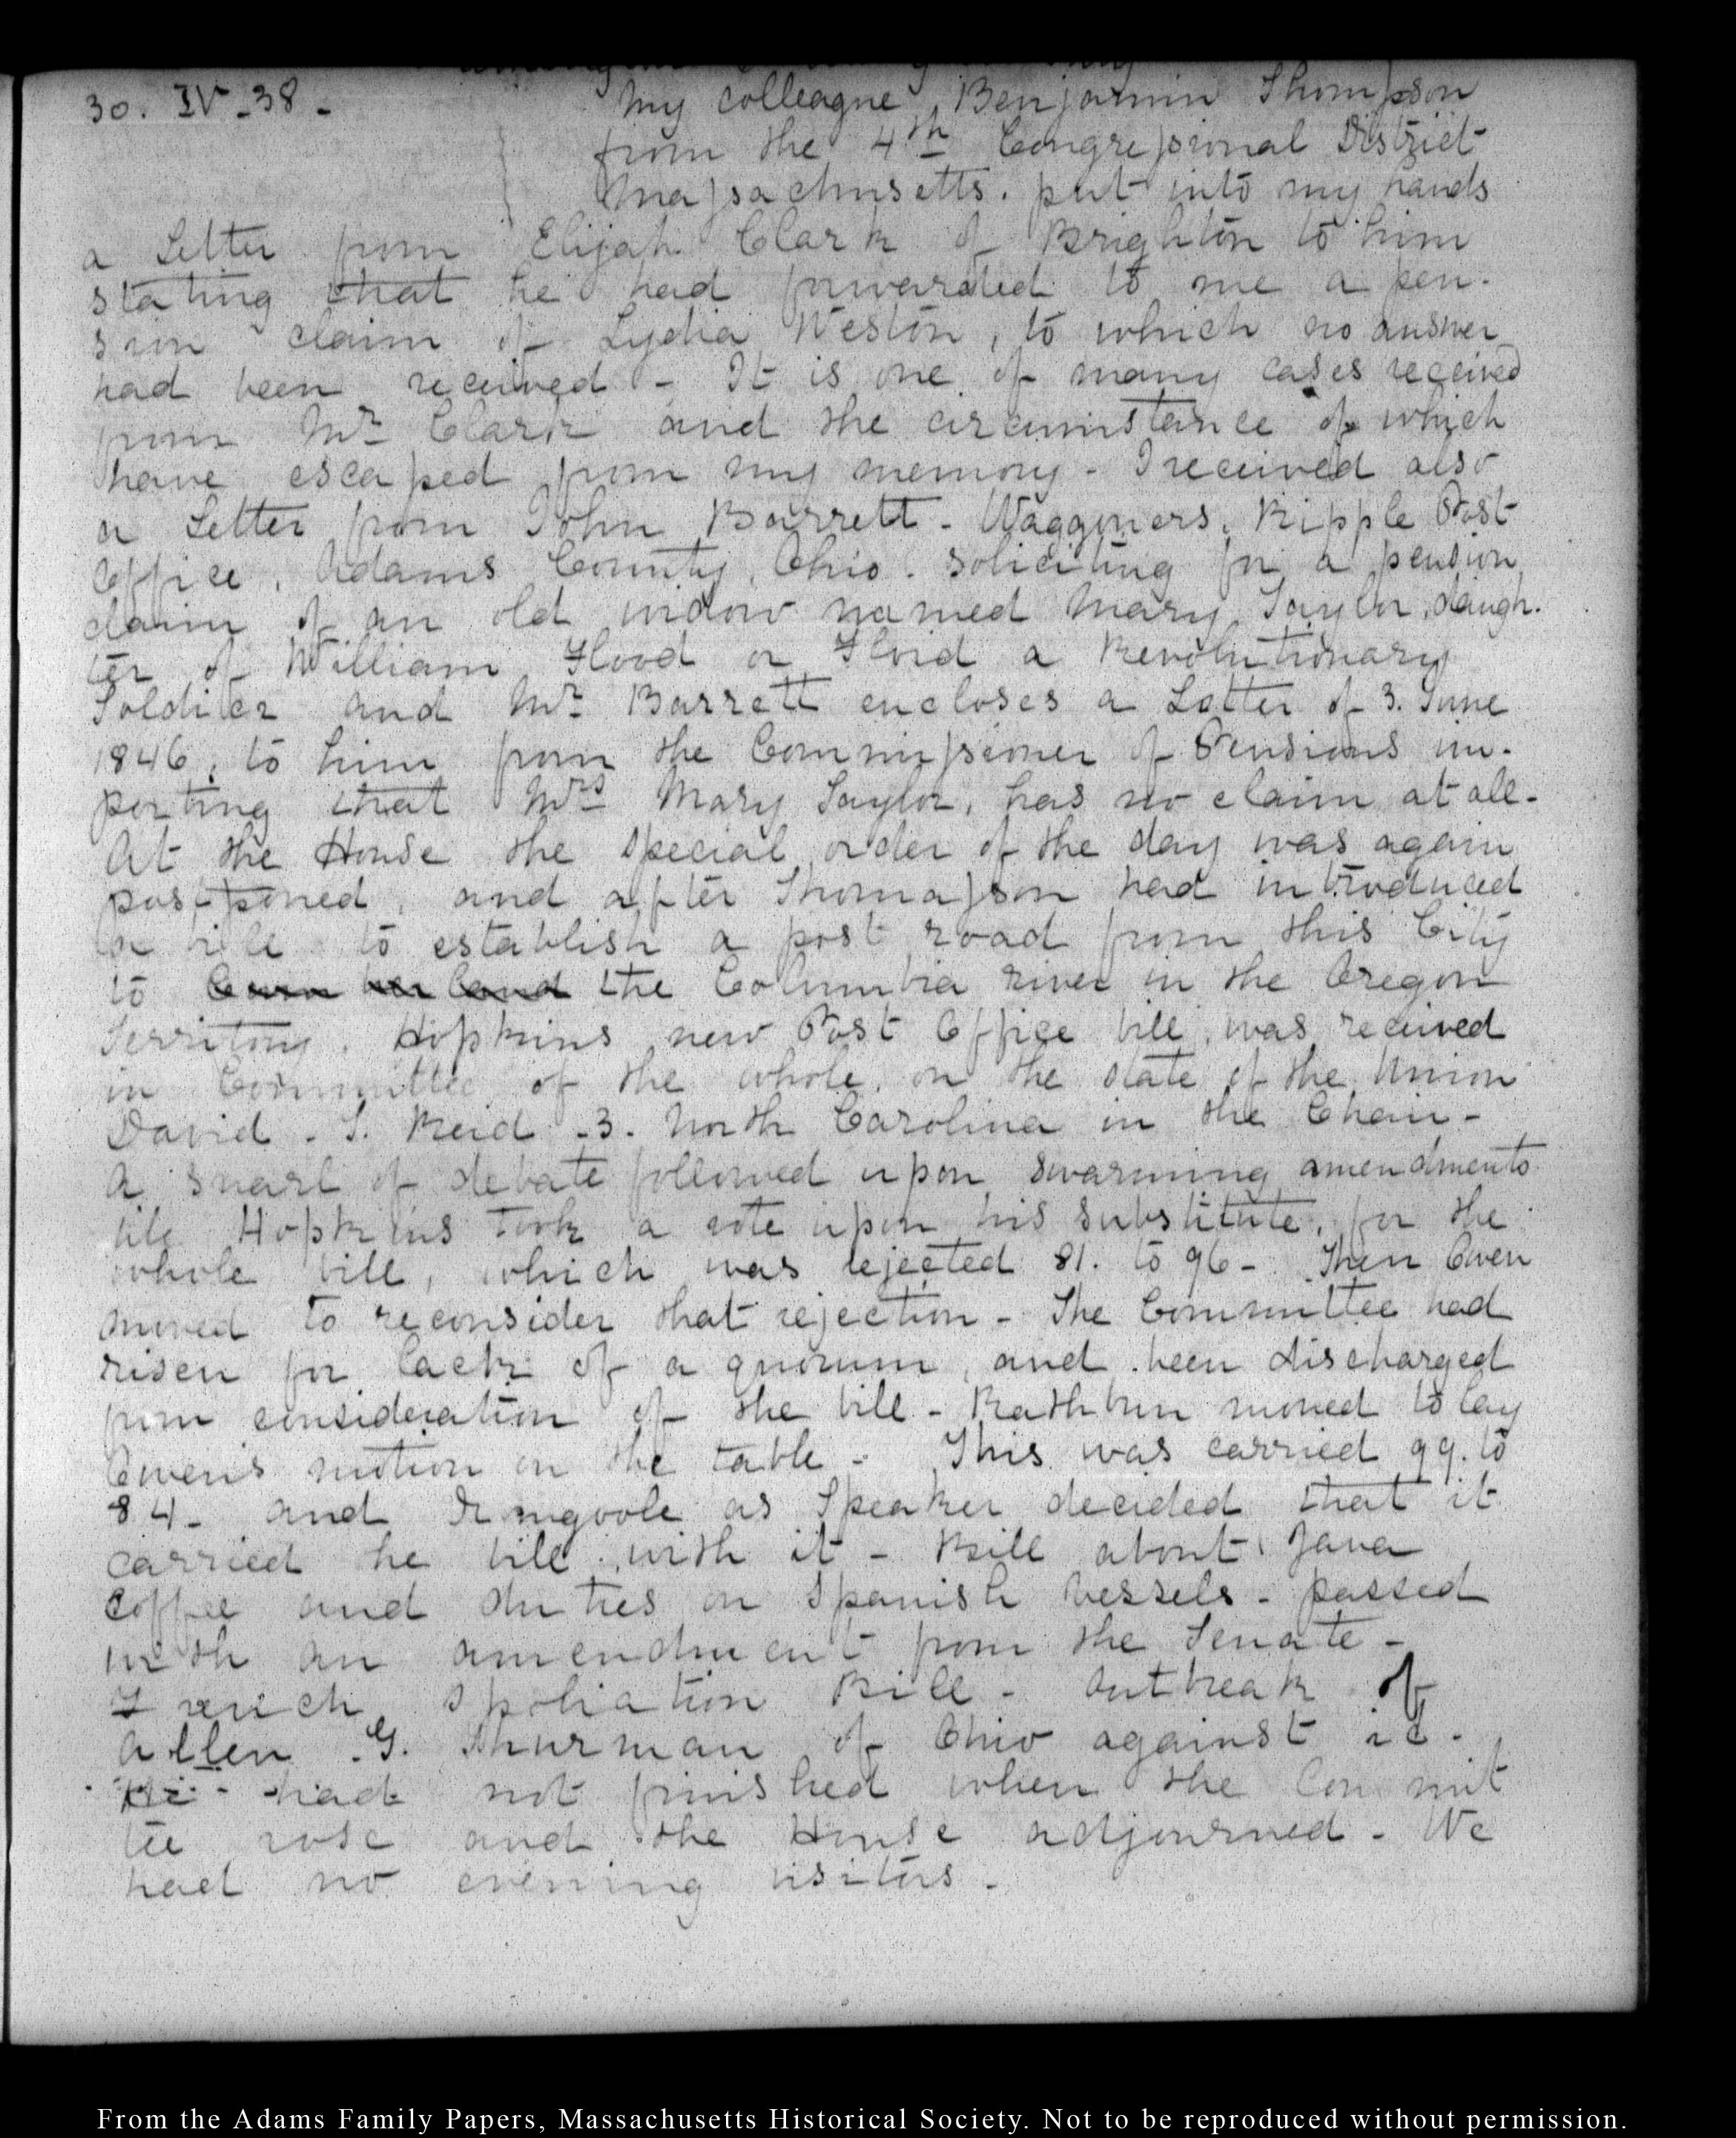 30. IV-38-
My colleague, Benjamin Thompson
from the 4th Congressional District
Massachusetts. put into my hands
a Letter from Elijah Clark of Brighton to him
stating that he had forwarded to me a pen-
sion claim of Lydia Weston, to which no answer
had been received - It is one of many cases received
from Mr Clark and the circumstance of which
have escaped from my memory - I received also
a Letter from John Barrett - Waggoners, Ripple Post
Office, Adams County, Ohio. soliciting for a pension
claim of an old widow named Mary Taylor, daugh-
ter of William Flood or Floid a Revolutionary
Soldier and Mr Barrett encloses a Letter of 3. June
1846, to him from the Commissioner of Pensions im-
porting that Mrs Mary Taylor, has no claim at all-
At the House the special order of the day was again
postponed, and after Thomasson had introduced
a bill to establish a post road from this City
to Cumberland the Columbia river in the Oregon
Territory, Hopkins new Post Office bill was received
in Committee of the whole, on the state of the Union
David - S. Reid - 3. North Carolina in the Chair -
A snarl of debate followed upon swarming amendments
till Hopkins took a vote upon his substitute, for the
whole bill, which was rejected 81. to 96 - Then Owen
moved to reconsider that rejection - The Committee had
risen for lack of a quorum, and been discharged
from consideration of the bill - Rathbun moved to lay
Owen's motion on the table - This was carried 99. to
84 - and as Speaker decided that it
carried he bill with it - Bill about Java
Coffee and duties on Spanish vessels - passed
with an amendment from the Senate -
French Spoliation Bill - Outbreak of
Allen . G. Thurman of Ohio against it -
He - had not finished when the Commit
tee rose and the House adjourned - We
had no evening visitors -
From the Adams Family Papers, Massachusetts Historical Society. Not to be reproduced without permission.